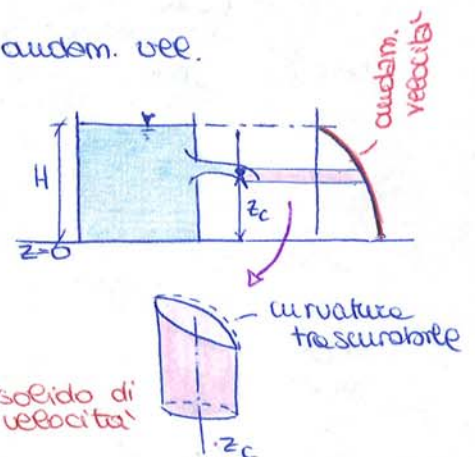 andam. vel.
andam.
velocità
H
z_c
z=0
curvatura
trascurabile
solido di
velocità
z_c